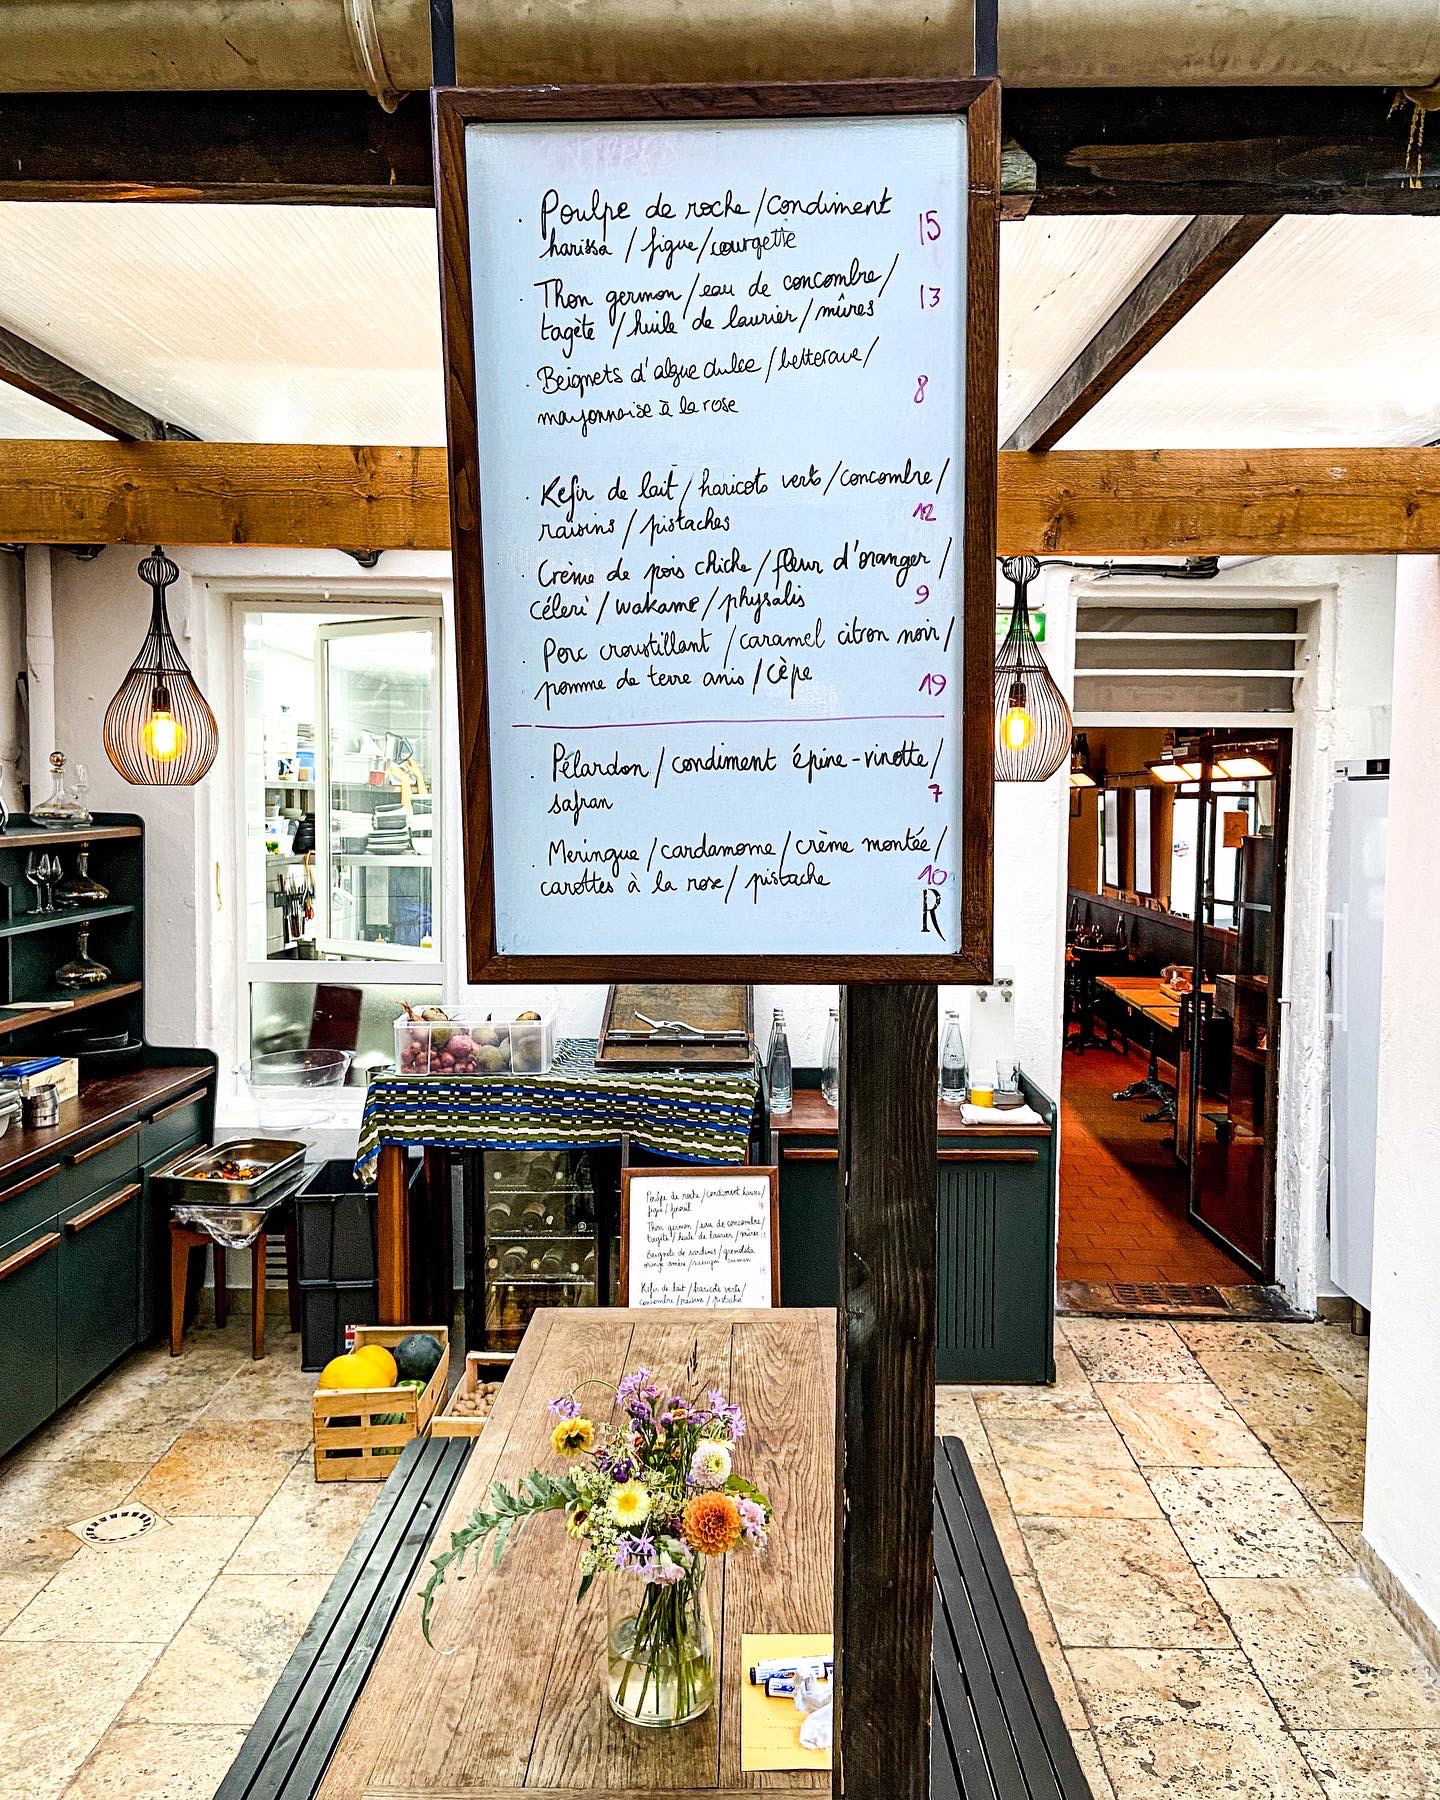 . Poulpe de roche / condiment
harissa / figue / courgette 15
. Thon germon / eau de concombre /
tagète / huile de laurier / mûres 13
. Beignets d'algue dulce / betterave /
mayonnaise à la rose 8
. Kefir de lait / haricots verts / concombre /
raisins / pistaches 12
. Crème de pois chiche / fleur d'oranger /
céleri / wakame / physalis 9
. Porc croustillant / caramel citron noir /
pomme de terre anis / cèpe 19
. Pélardon / condiment épine-vinette /
safran 7
. Meringue / cardamome / crème montée /
carottes à la rose / pistache 10
R
Poulpe de roche / condiment
figue / fenouil 15
Thon germon / eau de concombre /
tagète / huile de laurier / mûres 13
Beignets de sardines / 
orange amère / cumin
Kefir de lait / haricots verts /
concombre / raisins / pistaches